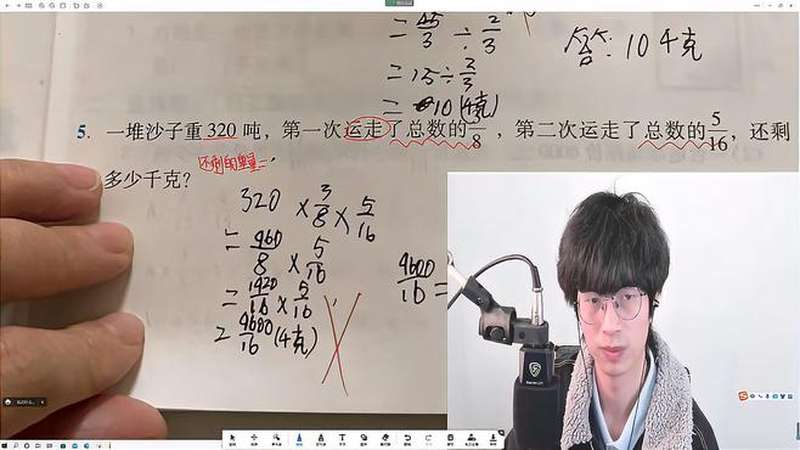 = 45/3 ÷ 2/3
= 15÷2/3
= 10(千克)
答: 10千克
5. 一堆沙子重320吨,第一次运走了总数的3/8,第二次运走了总数的5/16,还剩
还剩的重量=
多少千克?
320 ×3/8× 5/16
= 960/8 × 5/16
= 1920/16 × 5/16
= 4600/16 (千克)
4600/16 =